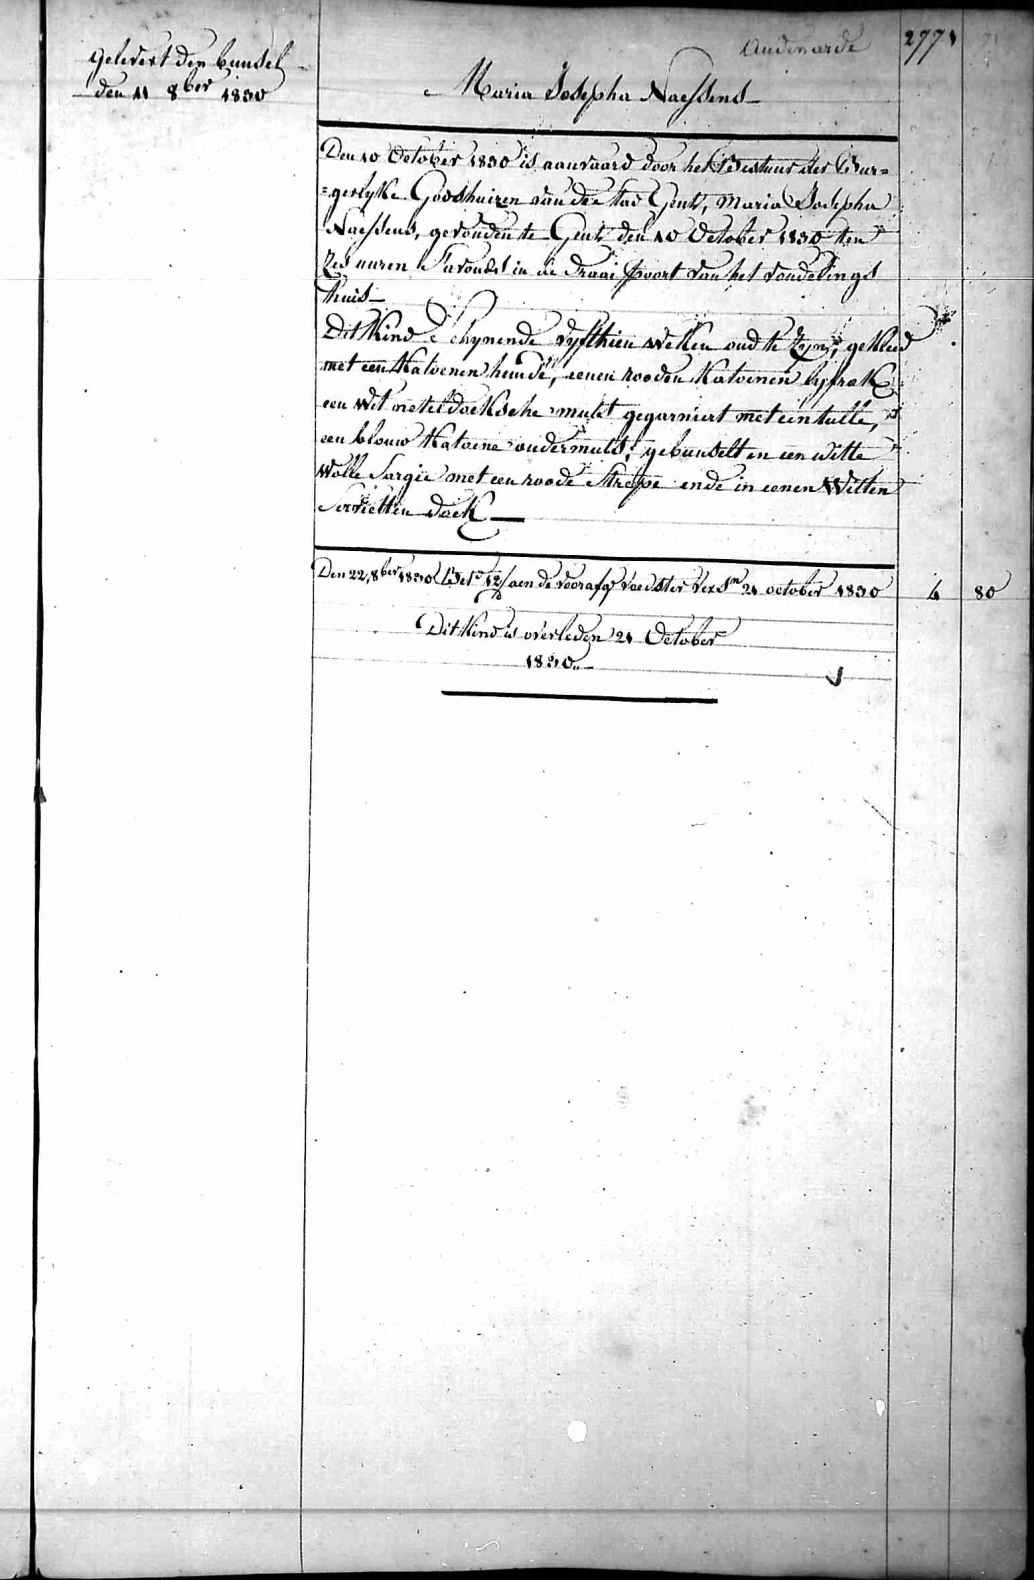 Audenarde 2771
gelevert den bunsel
den 11 8ber 1830
Maria Josepha Naessens
Den 10 October 1830 is aanvaard door het Bestuur der Bur=
=gerlyke Godshuizen van de stad Gent, Maria Josepha
Naessens, gevonden te Gent den 10 October 1830 ten
zes uuren s'avonds in de draai poort van het vondelings
huis
Dit Kind schynende vyfthien weken oud te zyn, gekleed
met een Katoenen hemde, eenen rooden Katoenen lyfrok
een wit neteldoeksche muts gegarniert met een tulle,
een blouw Katoene ondermuts, gebunselt en een witte
wolle sargie met een roode strepe ende in eenen Witten
servietten doek
Den 22, 8ber 1830 Bet. 12/ aen de voorafg voedster vers. 21 october 1830 4 80
Dit Kind is overleden 21 October
1830